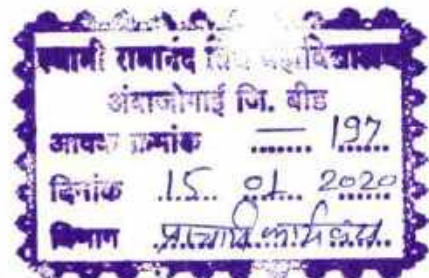 स्वामी रामानंद तिर्थ महाविद्यालय
अंबाजोगाई जि. बीड
आवक क्रमांक — 197
दिनांक 15 01 2020
विभाग